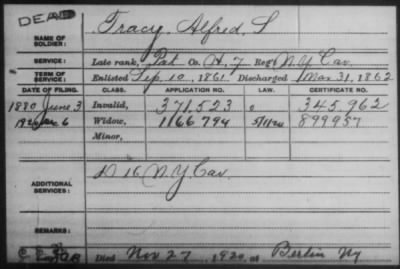 DEAD
Tracy, Alfred, S
NAME OF SOLDIER:
SERVICE: Late rank, Pvt Co. H, 7 Reg't N.Y. Cav.
TERM OF SERVICE: Enlisted Sep. 10, 1861 Discharged Mar 31, 1862
DATE OF FILING. CLASS. APPLICATION NO. LAW. CERTIFICATE NO.
1880 June 3 Invalid, 371.523 0 345.962
1920 6 Widow, 1166794 899957
Minor,
ADDITIONAL SERVICES: D 16 N.Y Cav.
REMARKS:
Died Nov 27, 1920, at Berlin NY